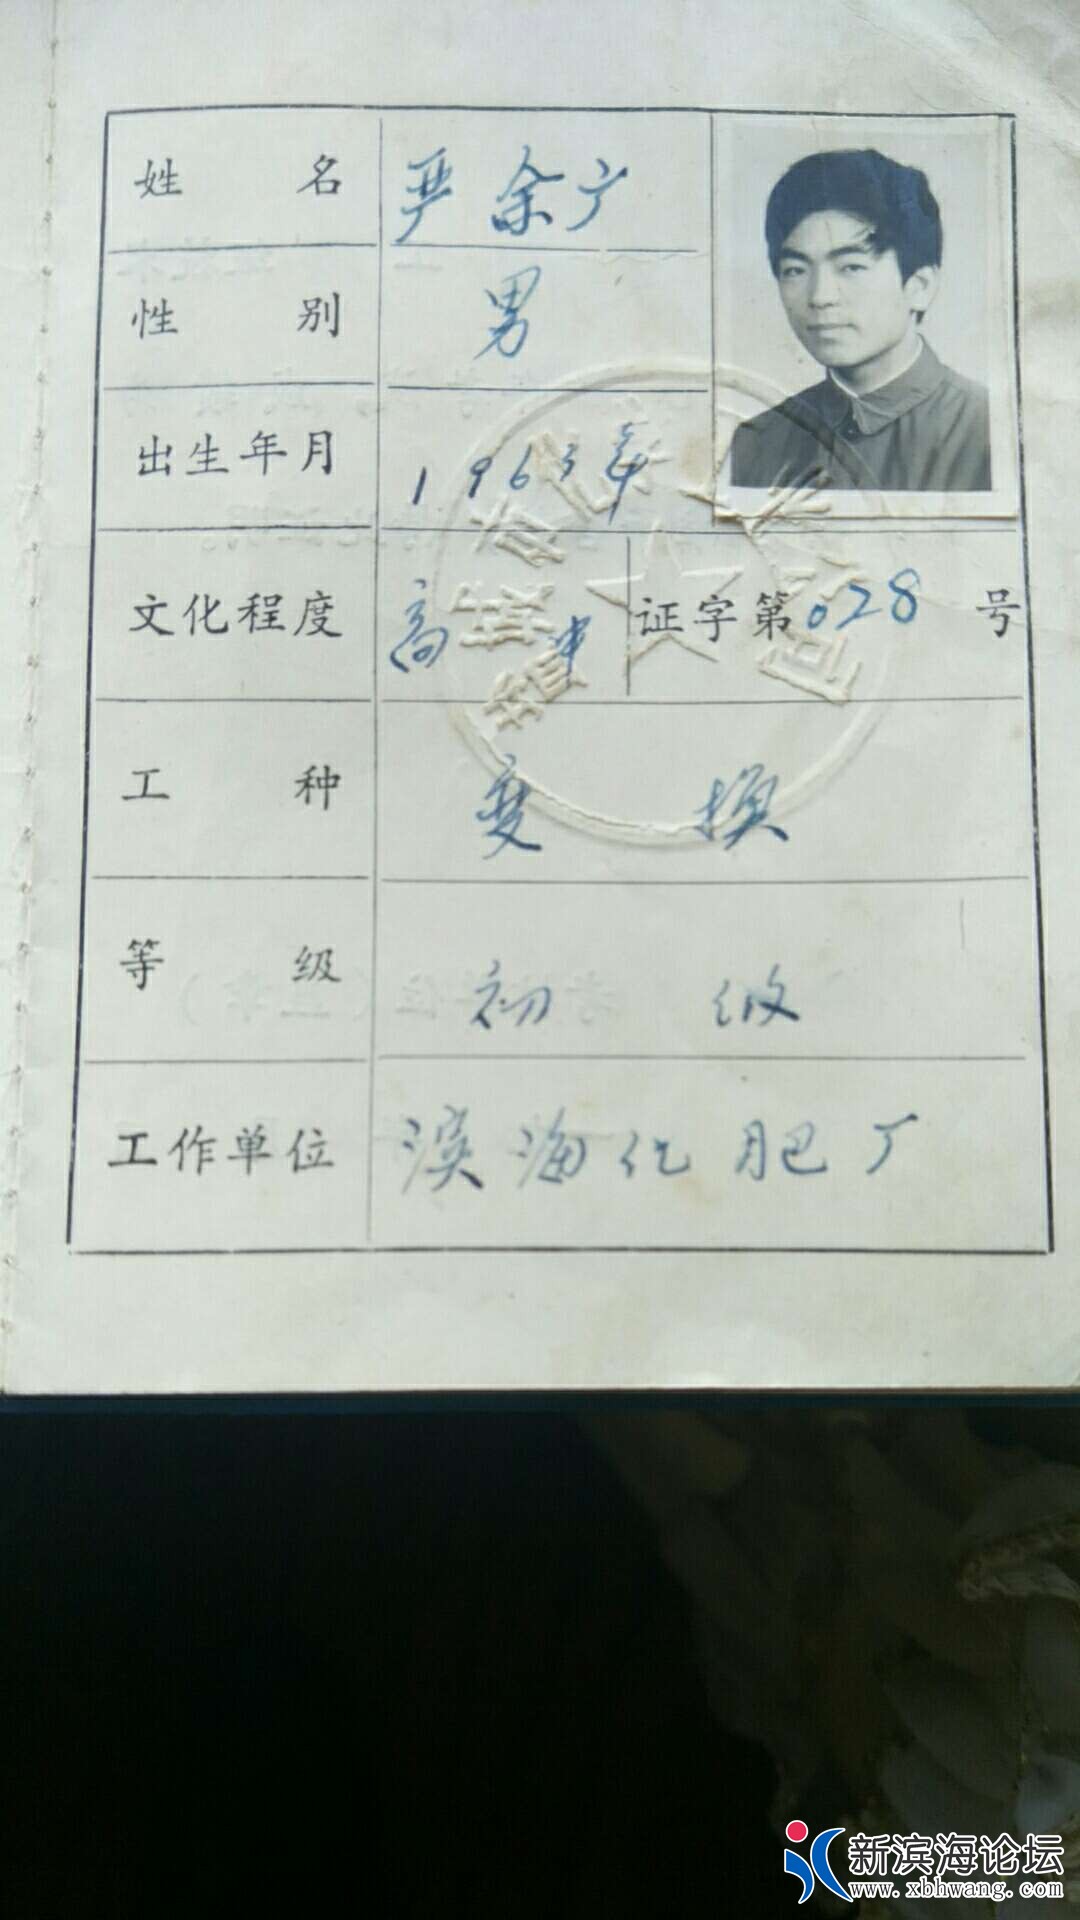 姓名 严余广
性别 男
出生年月 1963年
文化程度 高中 证字第028号
工种 变换
等级 初级
工作单位 滨海化肥厂
新滨海论坛
www.xbhwang.com